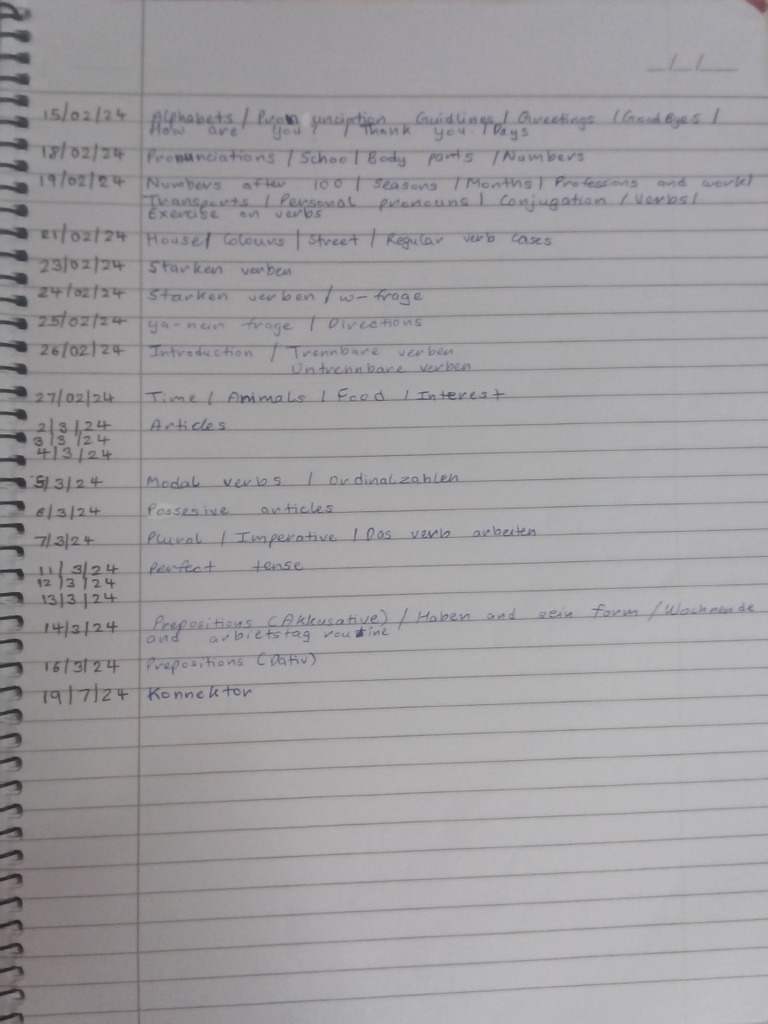 _/_/_
15/02/24 Alphabets / Pronunciption Guidlines / Greetings / Goodbyes /
How are you? / Thank you / Days
18/02/24 Pronunciations / School / Body parts / Numbers
19/02/24 Numbers after 100 / Seasons / Months / Professions and work /
Transports / Personal pronouns / Conjugation / Verbs /
Exercise on verbs
21/02/24 House / Colours / Street / Regular verb cases
23/02/24 Starken verben
24/02/24 Starken verben / w-frage
25/02/24 ya-nein frage / Directions
26/02/24 Introduction / Trennbare verben
Untrennbare verben
27/02/24 Time / Animals / Food / Interest
2/3/24 Articles
3/3/24
4/3/24
5/3/24 Modal verbs / Ordinalzahlen
6/3/24 Possesive articles
7/3/24 Plural / Imperative / Das verb arbeiten
11/3/24 Perfect tense
12/3/24
13/3/24
14/3/24 Prepositions (Akkusative) / Haben and sein form / Wochnende
and arbietstag routine
16/3/24 Prepositions (Dativ)
19/7/24 Konnektor